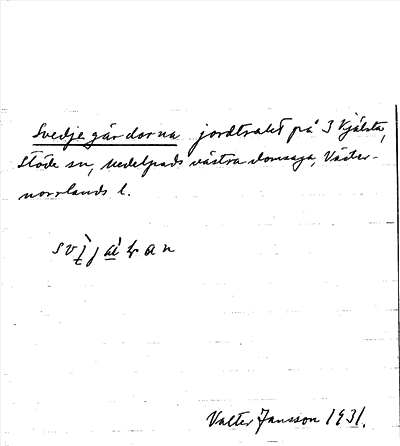 Svedjegårdorna jordtrakt på 3 Kjälsta,
Stöde sn, Medelpads västra domsaga, Väster-
norrlands l.
Valter Jansson 1931.